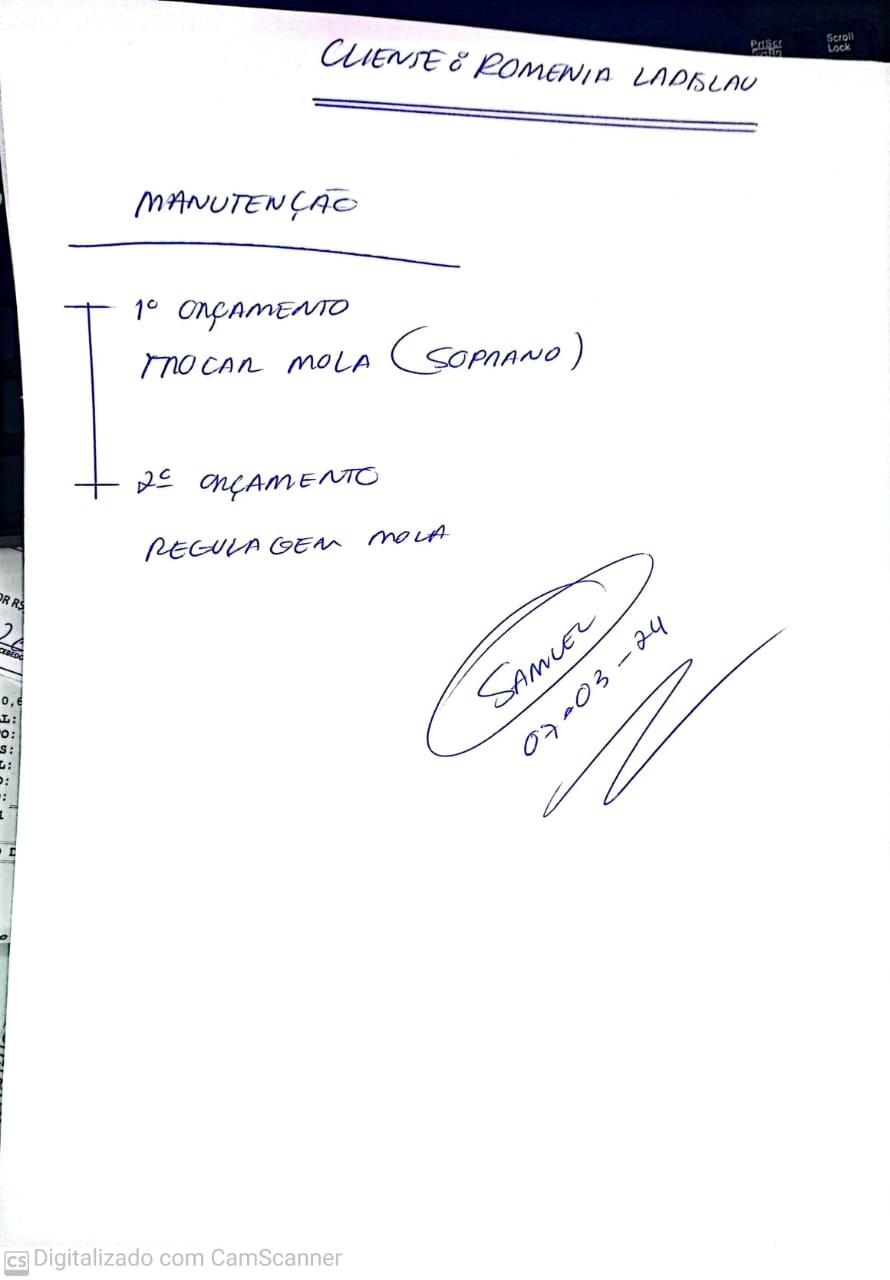 PrtScr
Scroll
Lock
CLIENTE: ROMENIA LADISLAU
MANUTENÇÃO
1º ORÇAMENTO
TROCAR MOLA (SOPRANO)
2º ORÇAMENTO
REGULAGEM MOLA
SAMUEL
07-03-24
OR R$
0,6
L:
O:
S:
L:
O:
:
CS Digitalizado com CamScanner